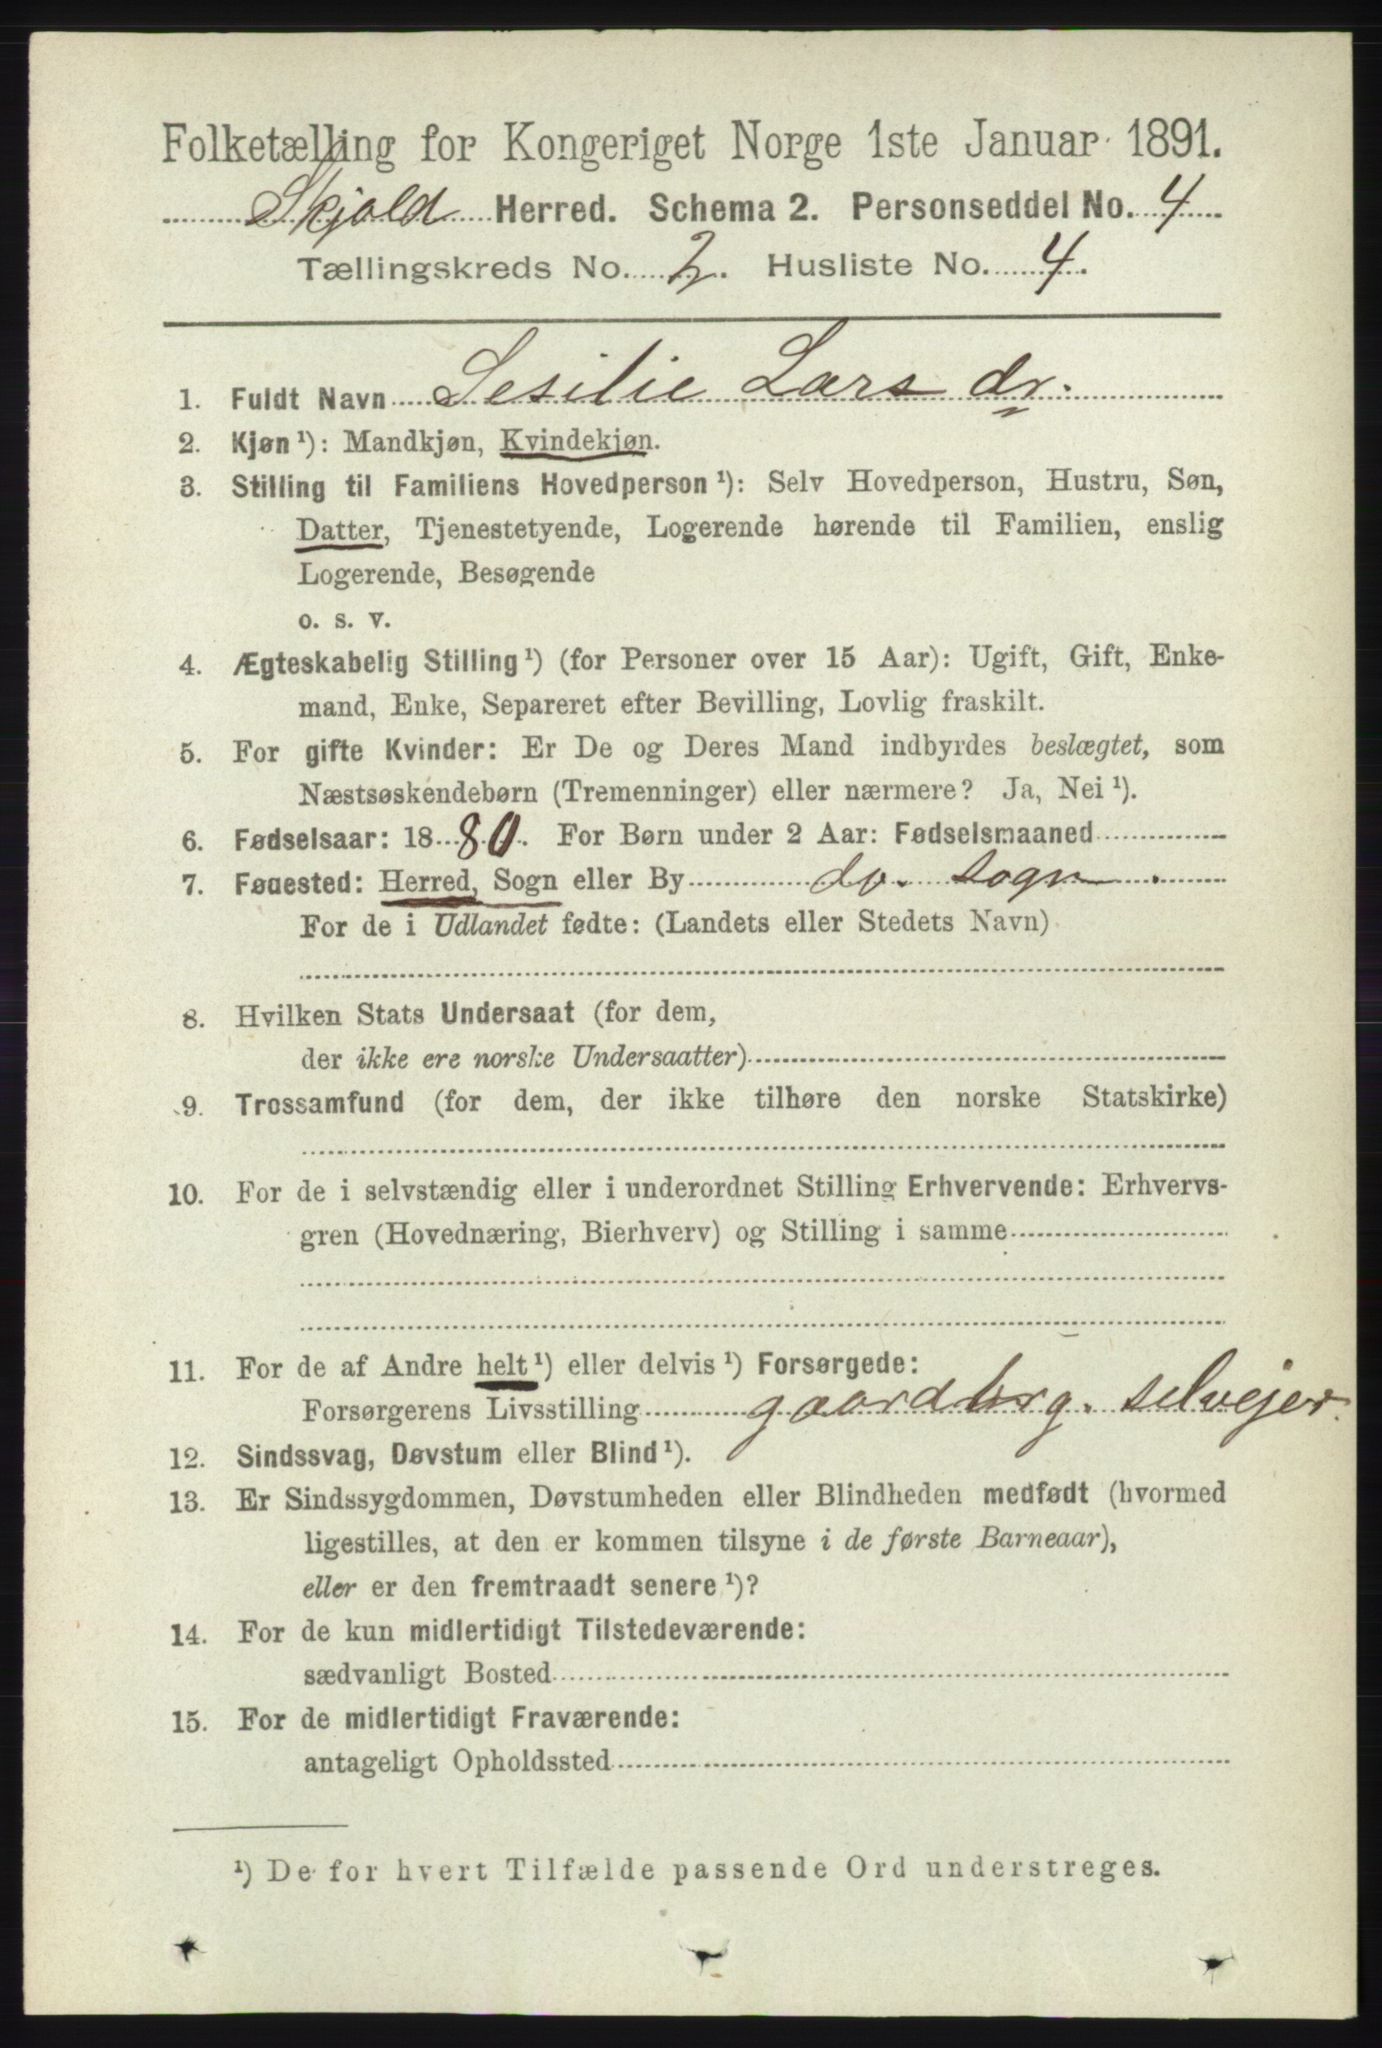 Folketælling for Kongeriget Norge 1ste Januar 1891.
Skjold Herred. Schema 2. Personseddel No. 4
Tællingskreds No. 2. Husliste No. 4.
1. Fuldt Navn Sesilie Lars dr.
2. Kjøn ¹): Mandkjøn, Kvindekjøn.
3. Stilling til Familiens Hovedperson ¹): Selv Hovedperson, Hustru, Søn,
Datter, Tjenestetyende, Logerende hørende til Familien, enslig
Logerende, Besøgende
o. s. v.
4. Ægteskabelig Stilling ¹) (for Personer over 15 Aar): Ugift, Gift, Enke-
mand, Enke, Separeret efter Bevilling, Lovlig fraskilt.
5. For gifte Kvinder: Er De og Deres Mand indbyrdes beslægtet, som
Næstsøskendebørn (Tremenninger) eller nærmere? Ja, Nei ¹).
6. Fødselsaar: 1880. For Børn under 2 Aar: Fødselsmaaned
7. Fødested: Herred, Sogn eller By do. sogn.
For de i Udlandet fødte: (Landets eller Stedets Navn)
8. Hvilken Stats Undersaat (for dem,
der ikke ere norske Undersaatter)
9. Trossamfund (for dem, der ikke tilhøre den norske Statskirke)
10. For de i selvstændig eller i underordnet Stilling Erhvervende: Erhvervs-
gren (Hovednæring, Bierhverv) og Stilling i samme
11. For de af Andre helt ¹) eller delvis ¹) Forsørgede:
Forsørgerens Livsstilling gaardbrg. selvejer.
12. Sindssvag, Døvstum eller Blind ¹).
13. Er Sindssygdommen, Døvstumheden eller Blindheden medfødt (hvormed
ligestilles, at den er kommen tilsyne i de første Barneaar),
eller er den fremtraadt senere ¹)?
14. For de kun midlertidigt Tilstedeværende:
sædvanligt Bosted
15. For de midlertidigt Fraværende:
antageligt Opholdssted
¹) De for hvert Tilfælde passende Ord understreges.